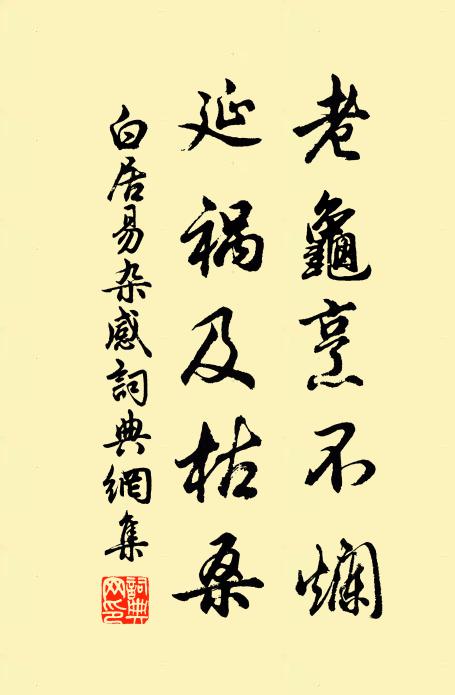 老龜烹不爛
延祸及枯桑
白居易杂感詞典網集
詞典網印